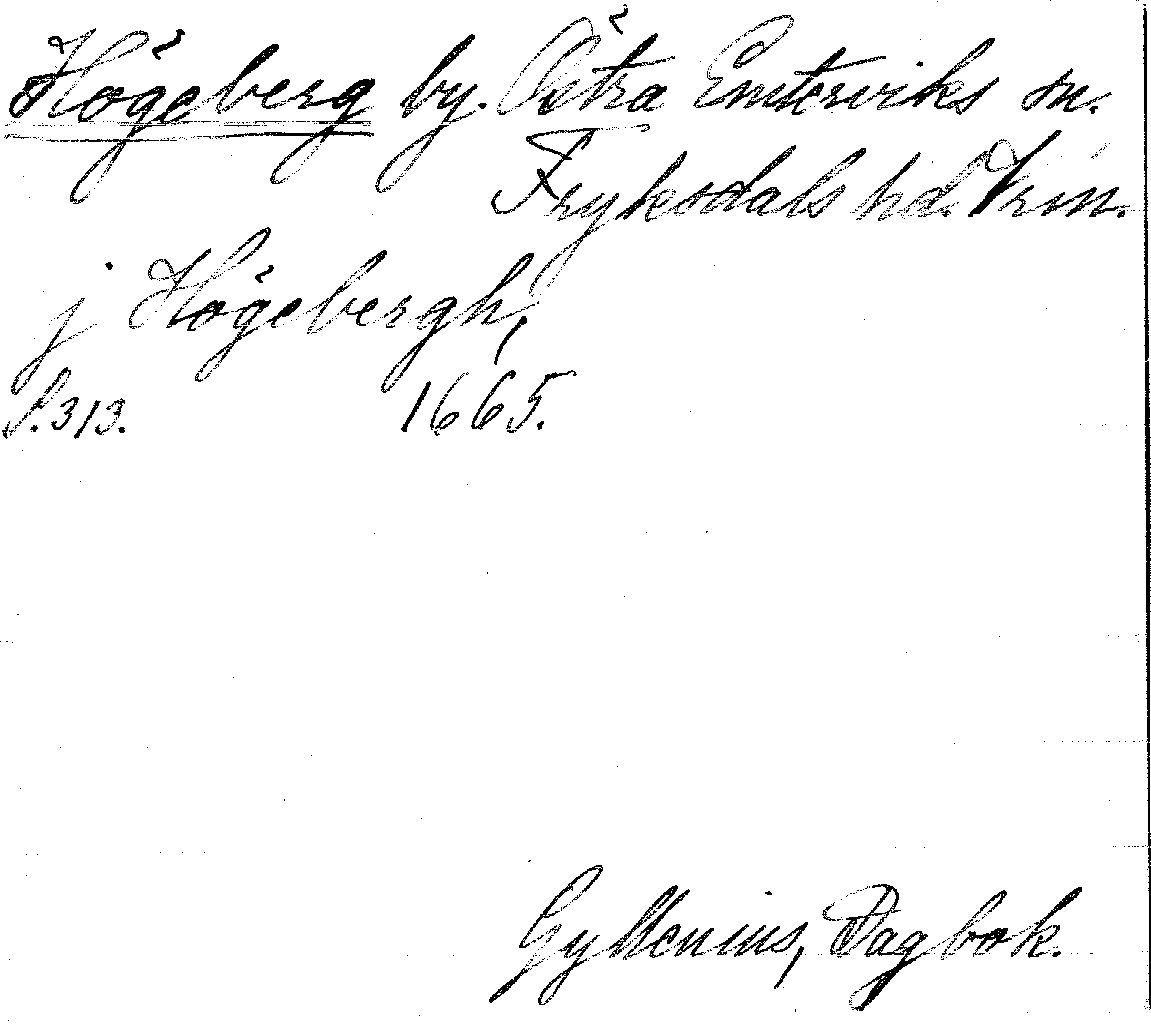 Högeberg by. Östra Emterviks sn.
Fryksdals hd. Vrml.
j Högebergh,
S. 313. 1665.
Gyllenius, Dagbok.